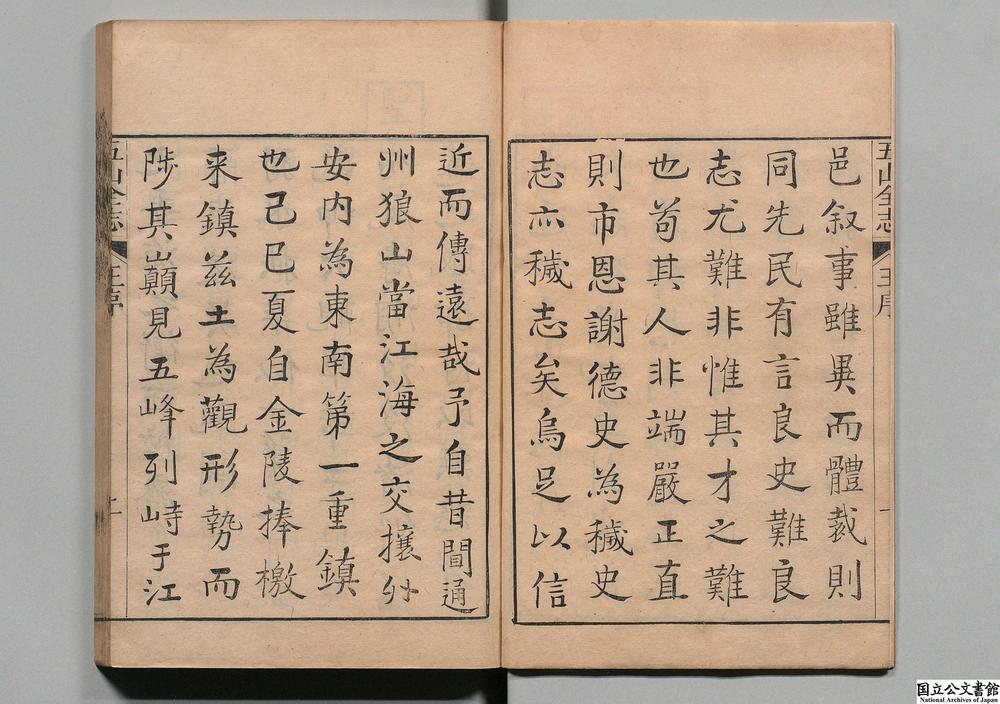 邑叙事雖異而體裁則
同先民有言良史難良
志尤難非惟其才之難
也苟其人非端嚴正直
則市恩謝德史為穢史
志亦穢志矣烏足以信
近而傳遠哉予自昔聞通
州狼山當江海之交攘外
安内為東南第一重鎮
也己巳夏自金陵捧檄
来鎮兹土為觀形勢而
陟其巔見五峰列峙于江
五山全志
王序
一
五山全志
王序
国立公文書館
National Archives of Japan